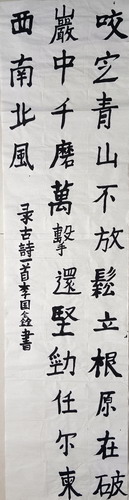 咬定青山不放鬆立根原在破
巖中千磨萬擊還堅勁任尔東
西南北風
录古詩一首李国鑫書